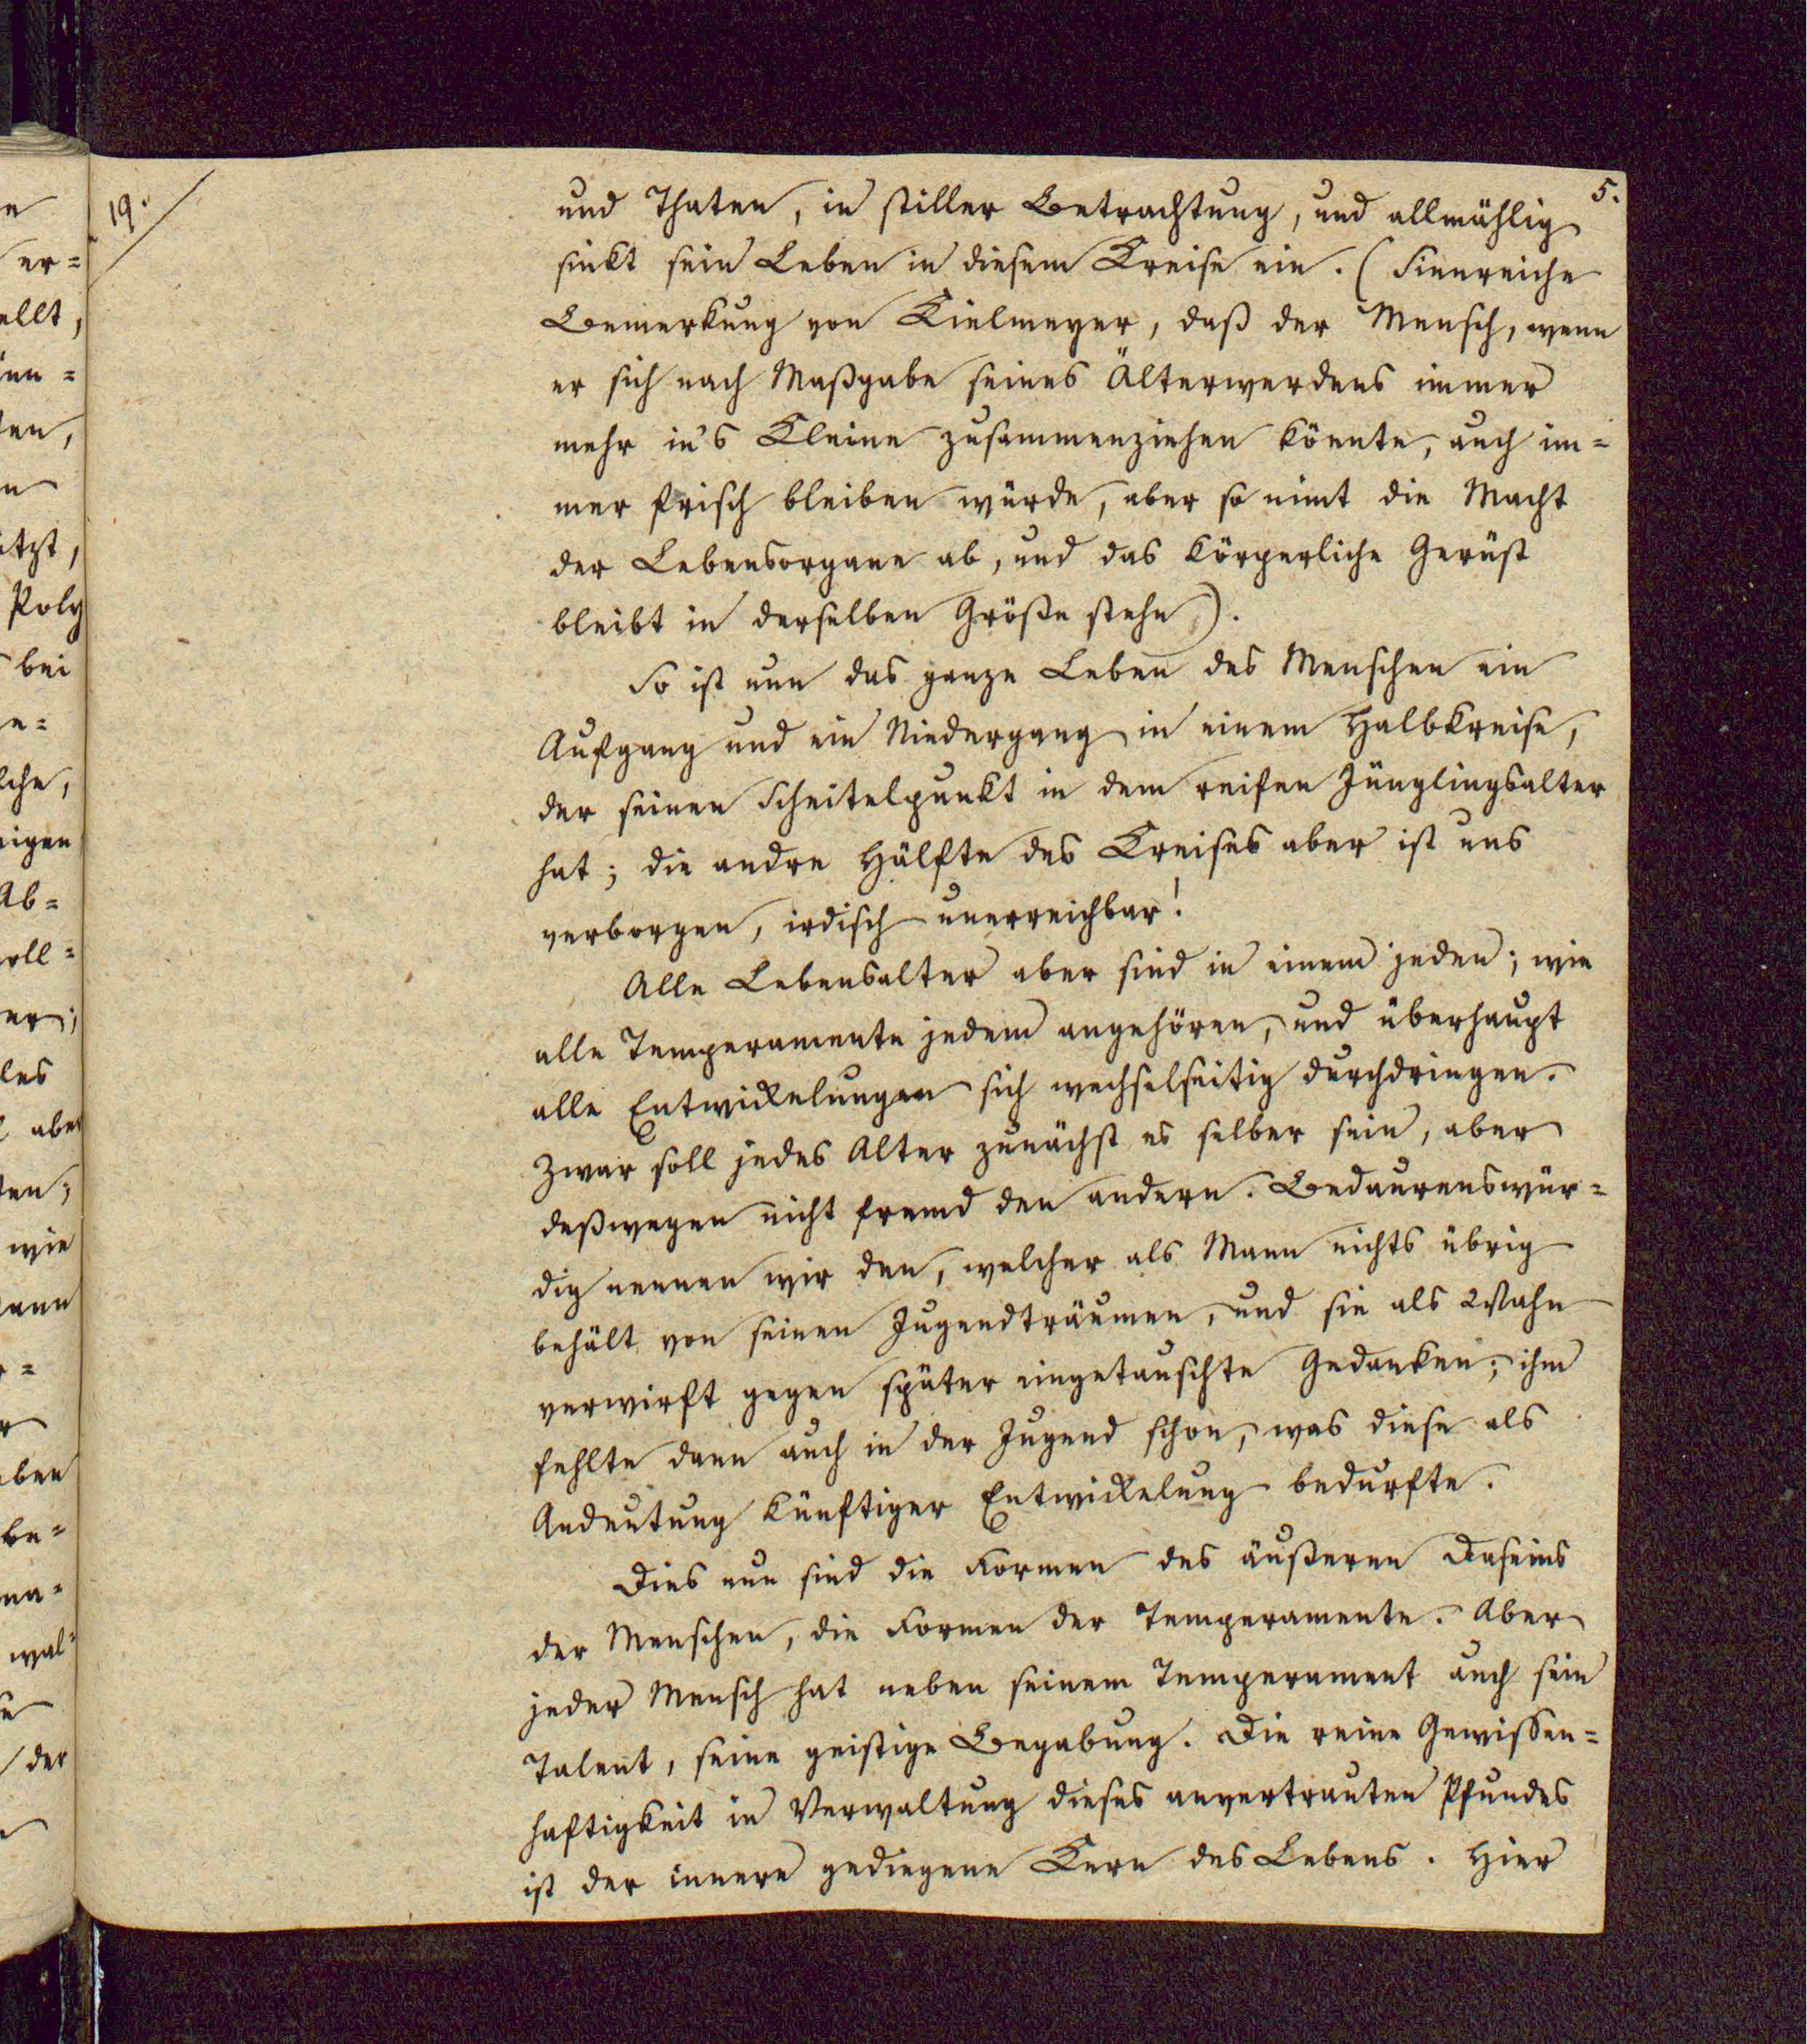 19.
5.
und Thaten, in stiller Betrachtung, und allmählig
sinkt sein Leben in diesem Kreise ein. (Sinnreiche
Bemerkung von Kielmeyer, daß der Mensch, wenn
er sich nach Maßgabe seines Älterwerdens immer
mehr in's Kleine zusammenziehen könnte, auch im=
mer frisch bleiben würde, aber so nimt die Macht
der Lebensorgane ab, und das körperliche Gerüst
bleibt in derselben Größe stehn).
So ist nun das ganze Leben des Menschen ein
Aufgang und ein Niedergang in einem Halbkreise,
der seinen Scheitelpunkt in dem reifen Jünglingsalter
hat; die andre Hälfte des Kreises aber ist uns
verborgen, irdisch unerreichbar!
Alle Lebensalter aber sind in einem jeden; wie
alle Temperamente jedem angehören, und überhaupt
alle Entwickelungen sich wechselseitig durchdringen.
Zwar soll jedes Alter zunächst es selber sein, aber
deßwegen nicht fremd den andern. Bedaurenswür=
dig nennen wir den, welcher als Mann nichts übrig
behält von seinen Jugendträumen, und sie als Wahn
verwirft gegen später eingetauschte Gedanken; ihm
fehlte dann auch in der Jugend schon, was diese als
Andeutung künftiger Entwickelung bedurfte.
Dies nun sind die Formen des äußeren Daseins
der Menschen, die Formen der Temperamente. Aber
jeder Mensch hat neben seinem Temperament auch sein
Talent, seine geistige Begabung. Die reine Gewissen=
haftigkeit in Verwaltung dieses anvertrauten Pfundes
ist der innere gediegene Kern des Lebens. Hier